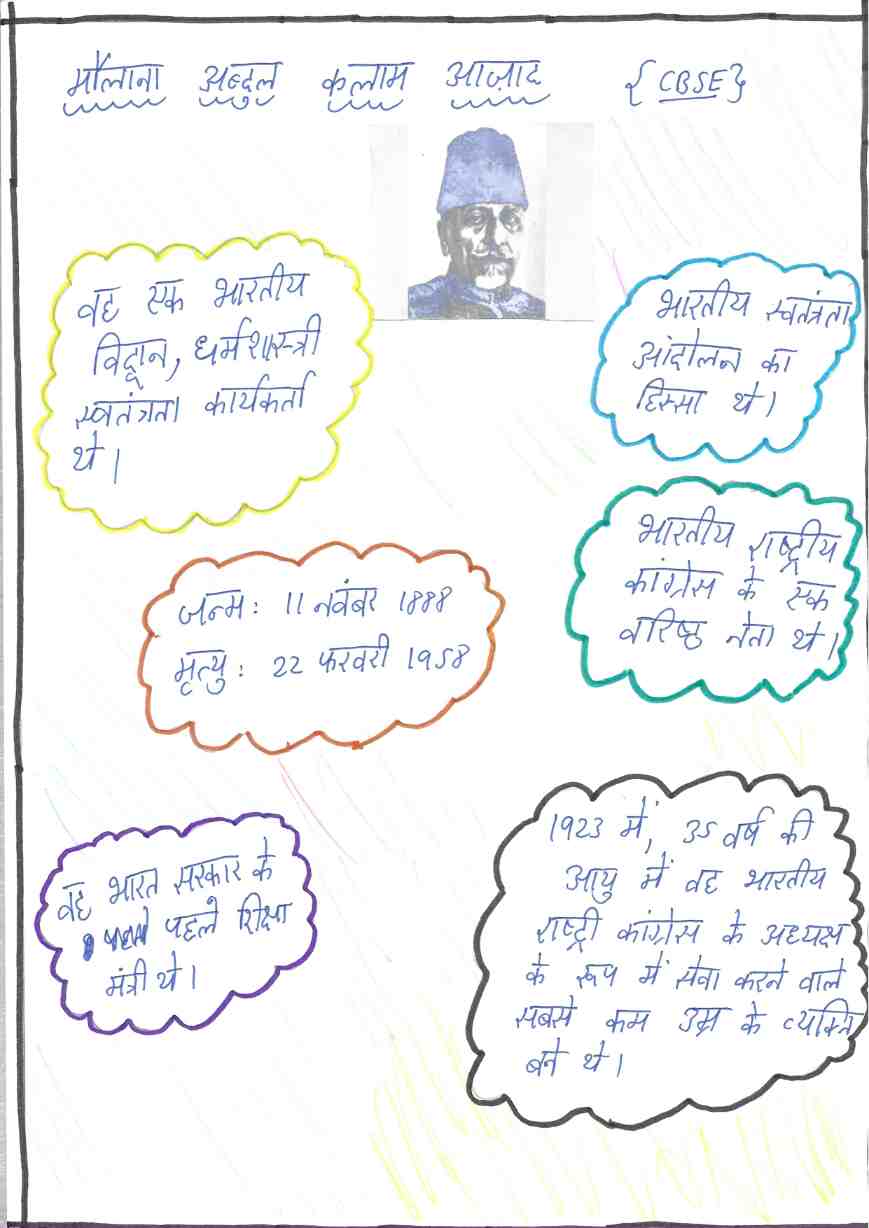 मौलाना अब्दुल कलाम आज़ाद {CBSE}
वह एक भारतीय
विद्वान, धर्मशास्त्री
स्वतंत्रता कार्यकर्ता
थे।
भारतीय स्वतंत्रता
आंदोलन का
हिस्सा थे।
भारतीय राष्ट्रीय
कांग्रेस के एक
वरिष्ठ नेता थे।
जन्म: 11 नवंबर 1888
मृत्यु: 22 फरवरी 1958
वह भारत सरकार के
पहले शिक्षा
मंत्री थे।
1923 में, 35 वर्ष की
आयु में वह भारतीय
राष्ट्री कांग्रेस के अध्यक्ष
के रूप में सेवा करने वाले
सबसे कम उम्र के व्यक्ति
बने थे।